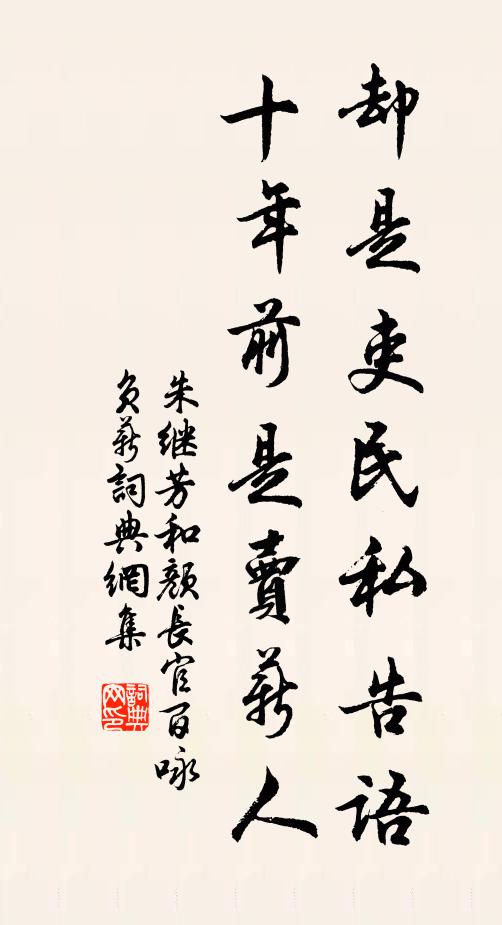 却是吏民私告語
十年前是賣薪人
朱继芳和顏長官百咏
負薪詞典網集
詞典网印